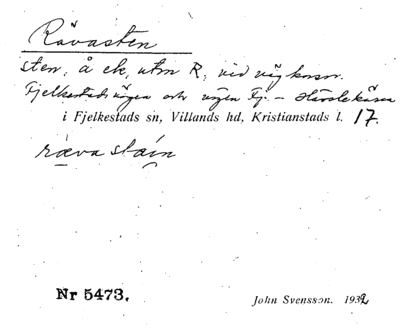 Rävasten
sten, å ek, utm R, vid vägkorsn.
Fjelkestadsvägen och vägen Fj. –
i Fjelkestads sn, Villands hd, Kristianstads l. 17.
ræva stáin
Nr 5473.
John Svensson. 1932